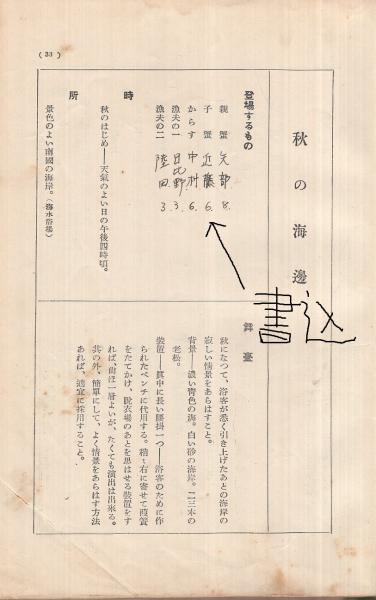 (33)
秋の海邊
登場するもの
親蟹 矢部 8.
子蟹 近藤 6.
からす 中村 6.
漁夫の一 日比野 3.
漁夫の二 陸田 3.
時
秋のはじめ——天氣のよい日の午後四時頃。
所
景色のよい南國の海岸。(海水浴場)
書込
舞臺
秋になつて、浴客が悉く引き上げたあとの海岸の
寂しい情景をあらはすこと。
背景——濃い青色の海。白い砂の海岸。二三本の
老松。
裝置——眞中に長い腰掛一つ——浴客のために作
られたベンチに代用する。稍〻右に寄せて葭簀
をたてかけ、脫衣場のあとを思はせる裝置をす
れば、尙ほ一層よいが、なくても演出は出來る。
其の外、簡單にして、よく情景をあらはす方法
あれば、適宜に採用すること。